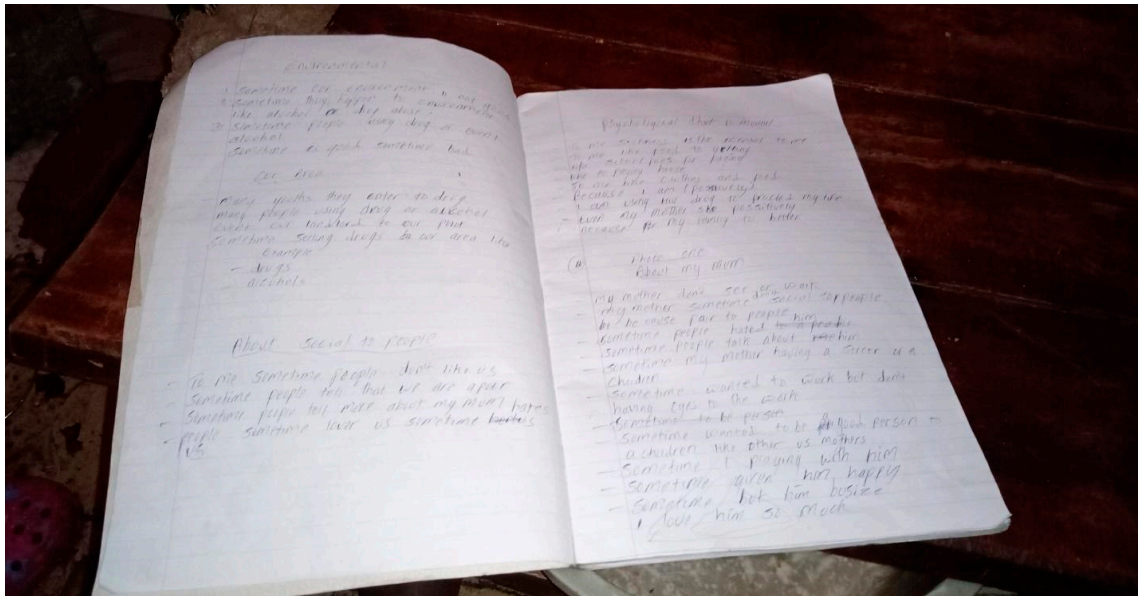 Environmental
1. Sometime our environment is not good
2. Sometime they happen to environment
like alcohol or drug abuse
3) Sometime people using drug or even
alcohol
Sometime is good sometime bad
Our Area
- Many youths they enter to drug
many people using drug or alcohol
even our landlord to our plot
Sometime selling drugs to our area like
Example
- drugs
alcohols
About social to people
- To me sometime people don't like us
- Sometime people tell that we are apoor
- Sometime people tell more about my mum hates
- people sometime lover us sometime
us
Psychological that is mental
me sickness is the
me like goal to getting
school fees for
like to paying house
So me like clothes and
- Because I am (Positively)
I am using this drug to my life
- Love my mother she possitively
- because for my family to better
(a) Photo one
About my mum
- my mother don't see or work
- my mother sometime don't social so people
be because fair to people
- sometime people hated him
- sometime people talk about him
- sometime my mother having a
children
- sometime wanted to work but don't
having Eyes to the work
- Sometime to be person
sometime wanted to be good person
a children like other us mothers
- Sometime I playing with him
- sometime given him happy
- sometime him
I love him so much